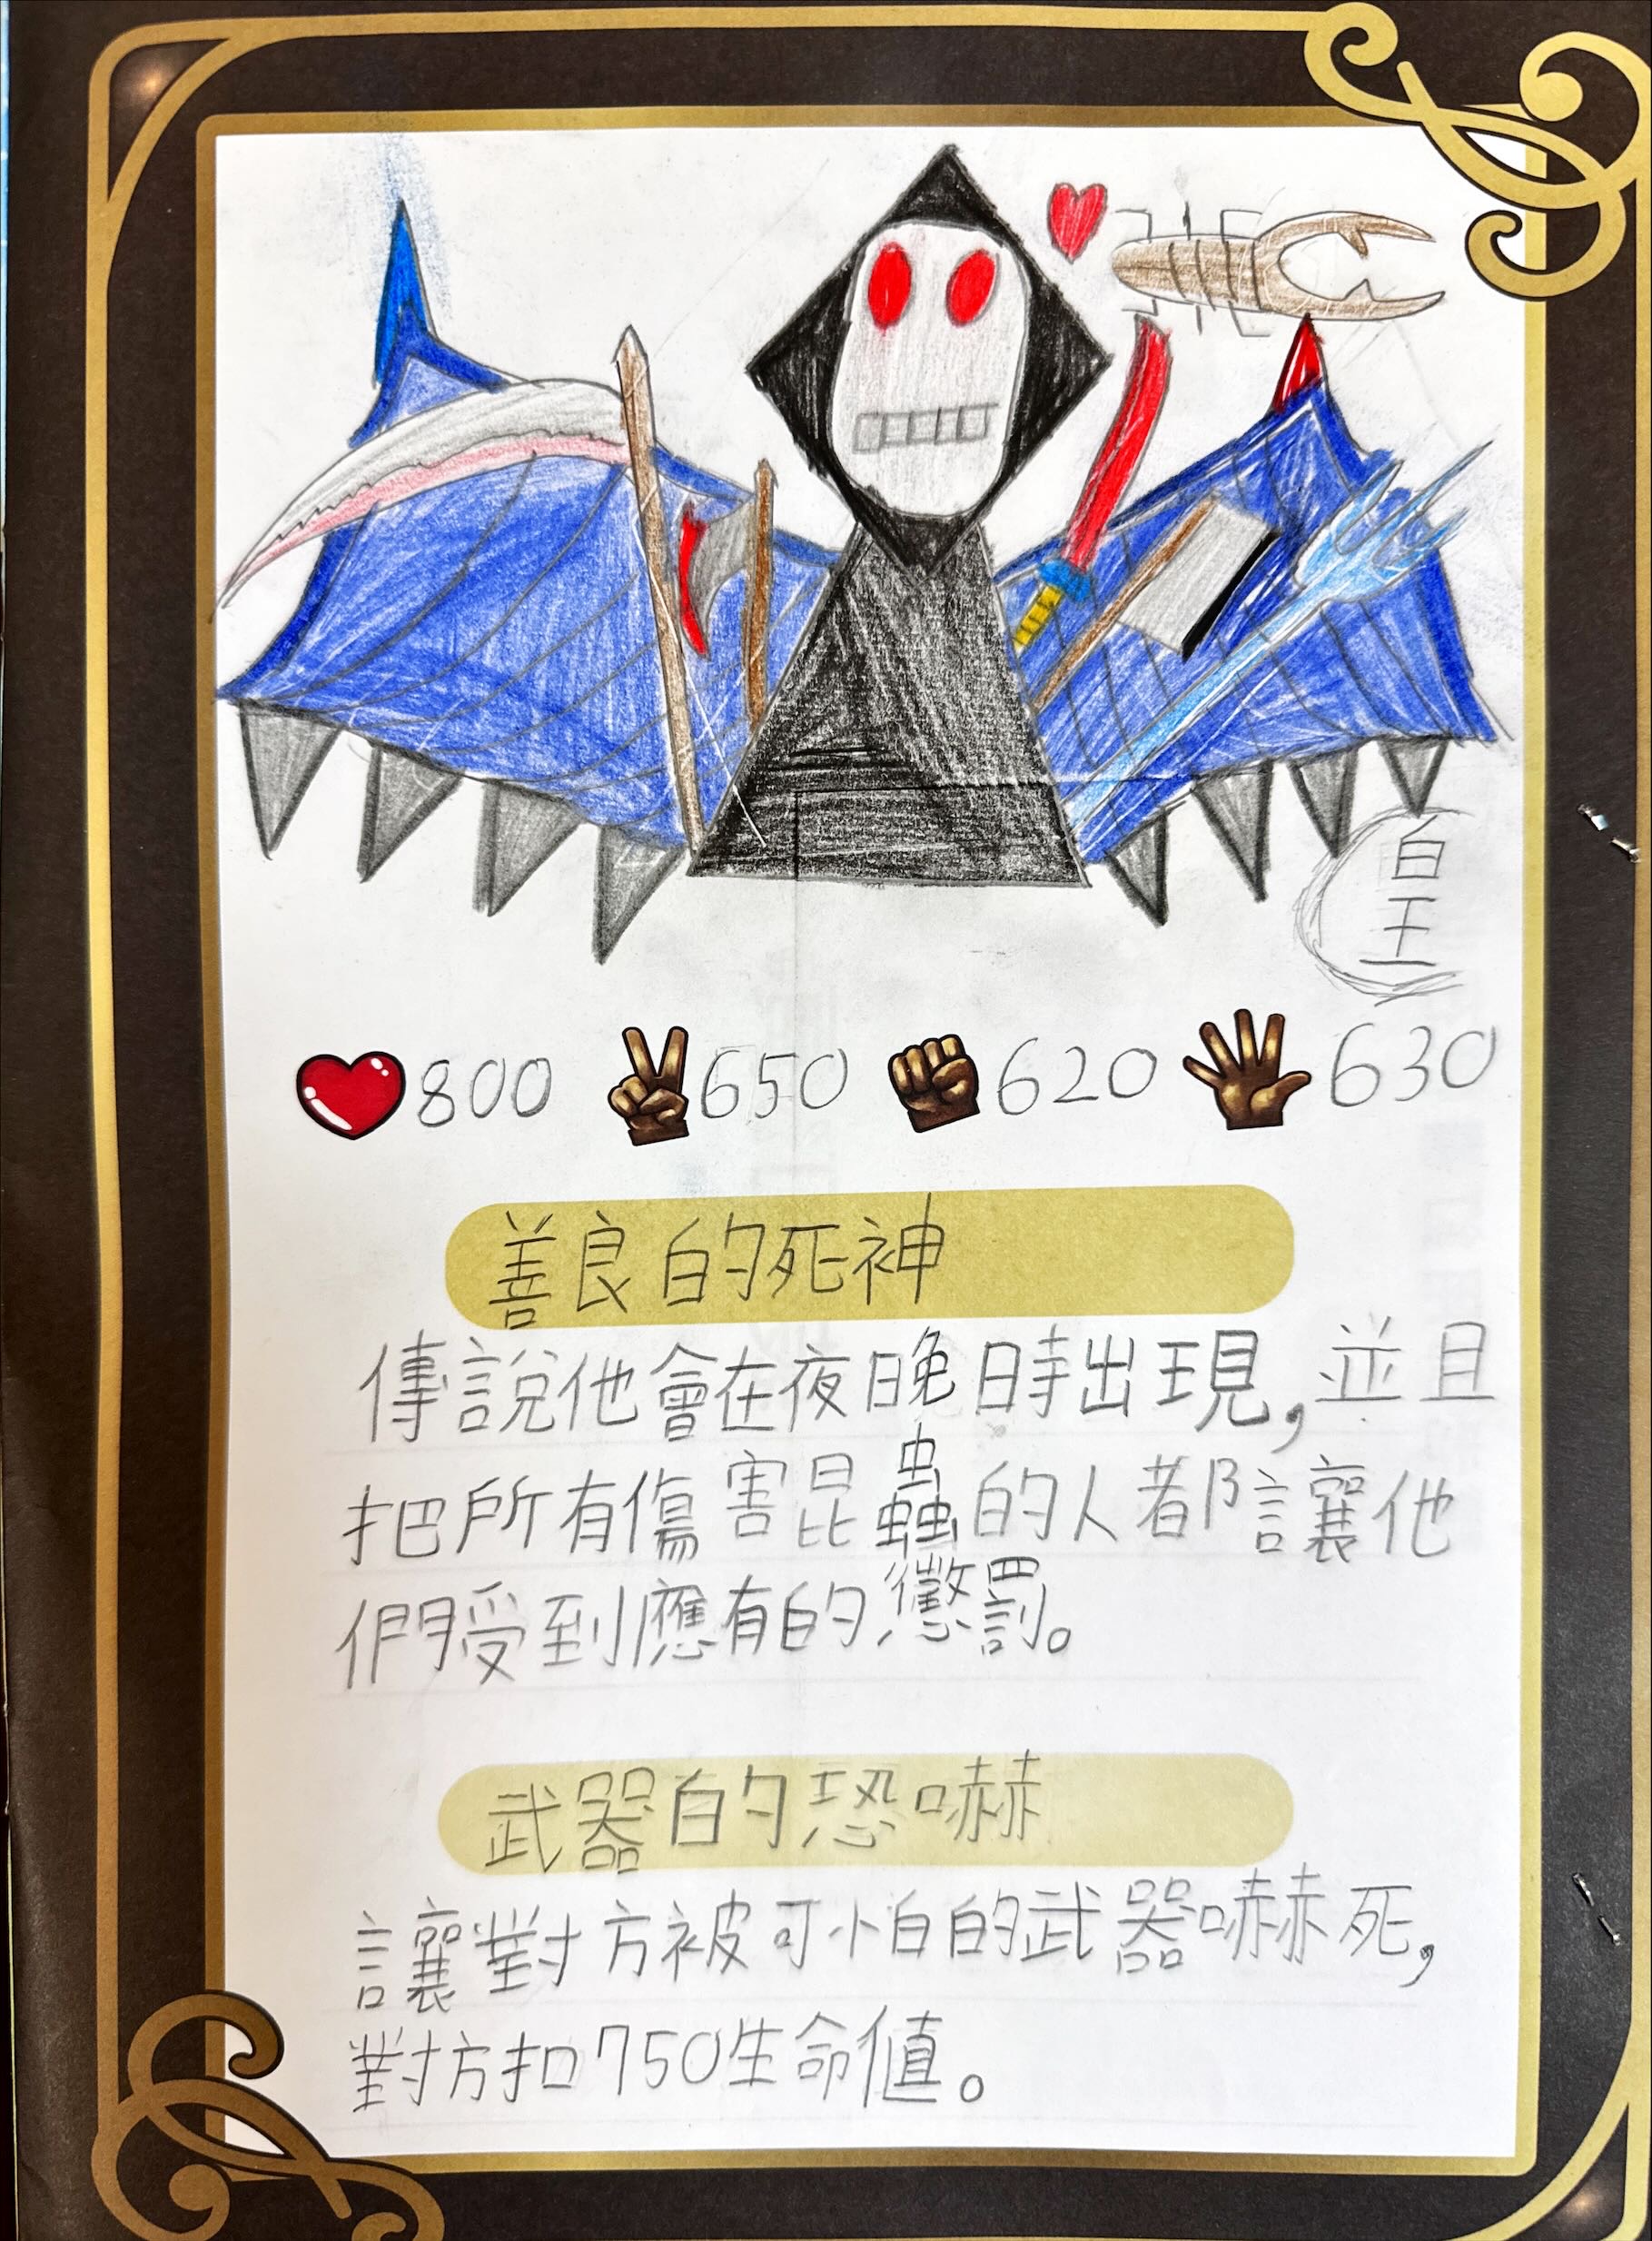 皇
800 650 620 630
善良的死神
傳說他會在夜晚時出現,並且
把所有傷害昆蟲的人都讓他
們受到應有的懲罰。
武器的恐嚇
讓對方被可怕的武器嚇死,
對方扣750生命值。